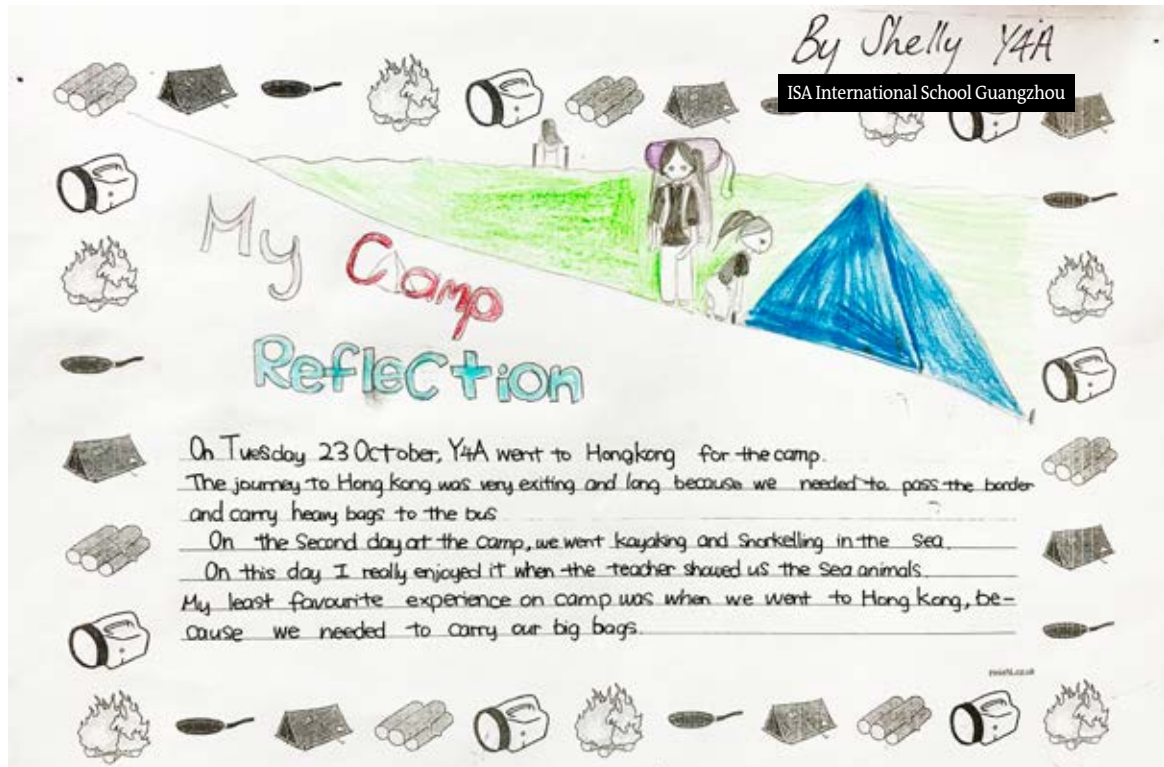 By Shelly Y4A
ISA International School Guangzhou
My Camp
Reflection
On Tuesday 23 October, Y4A went to Hongkong for the camp.
The journey to Hong Kong was very exiting and long because we needed to pass the border
and carry heavy bags to the bus
On the Second day at the camp, we went kayaking and Snorkelling in the sea.
On this day I really enjoyed it when the teacher showed us the Sea animals.
My least favourite experience on camp was when we went to Hong Kong, be-
cause we needed to carry our big bags.